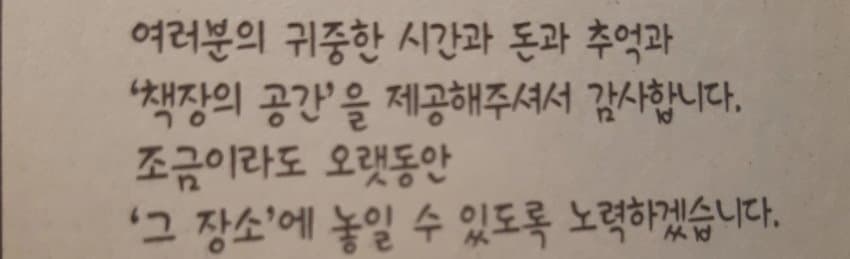 여러분의 귀중한 시간과 돈과 추억과
'책장의 공간'을 제공해주셔서 감사합니다.
조금이라도 오랫동안
'그 장소'에 놓일 수 있도록 노력하겠습니다.